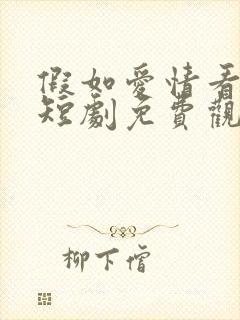 假如愛情看
短劇免費觀
柳下僧